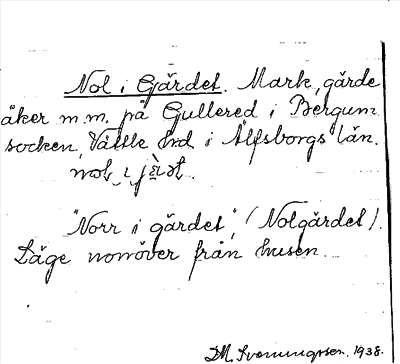 Nol i Gärdet. Mark, gärde
åker m.m. på Gullered i Bergum
socken, Vättle hrd i Älfsborgs län.
"Norr i gärdet", (Nolgärdet).
Läge norröver från husen.
D.M. Svenungsson. 1938.